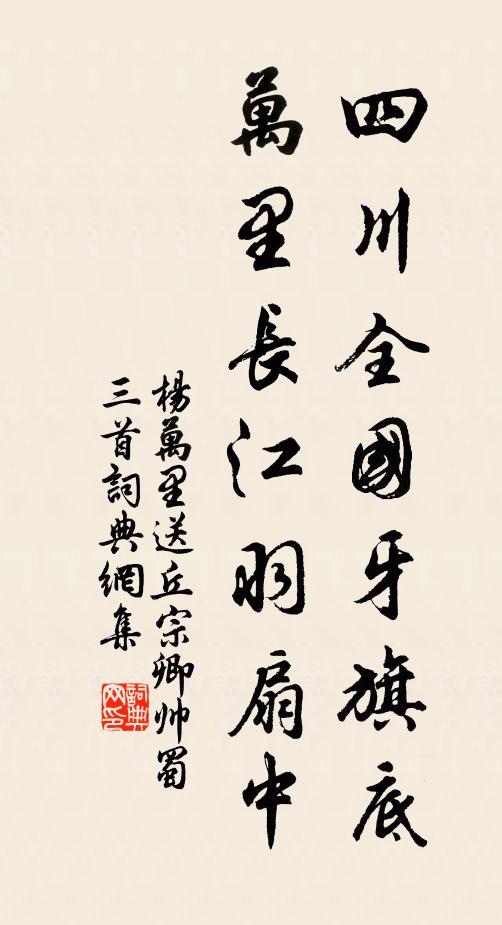 四川全國牙旗底
萬里長江羽扇中
楊萬里送丘宗卿帅蜀
三首詞典網集
詞典网印